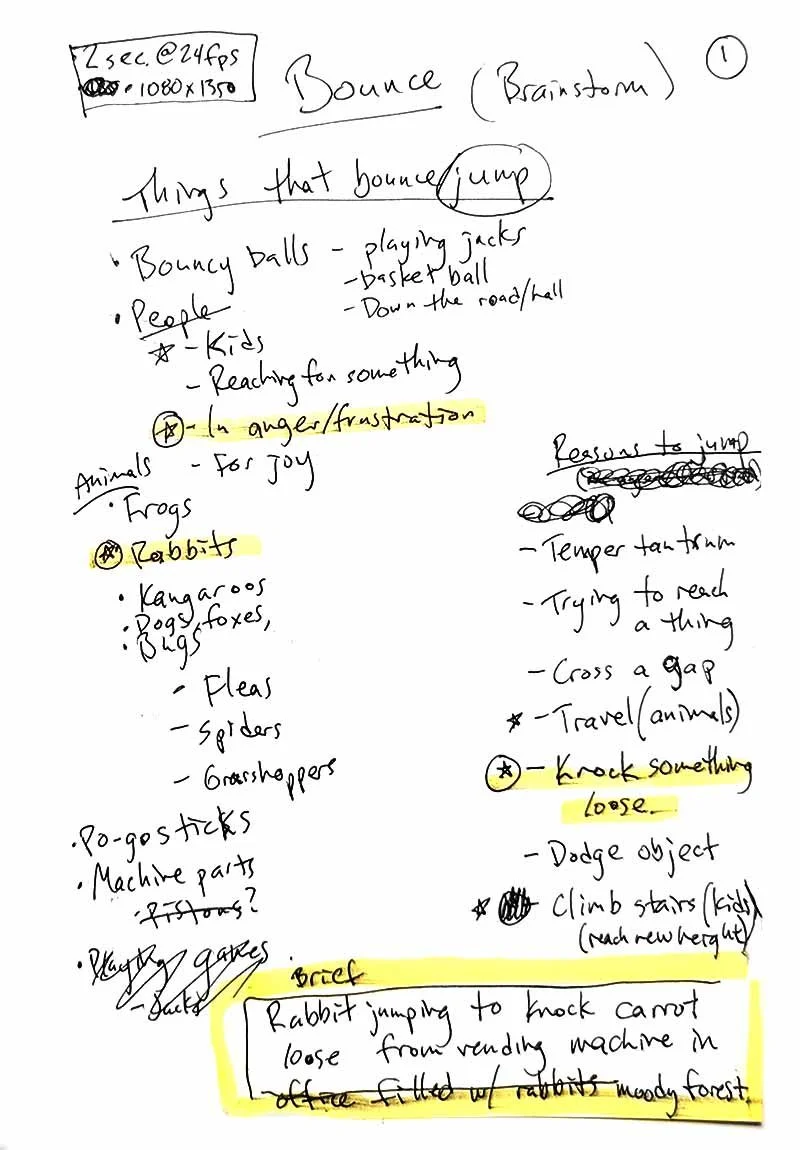 2 sec. @ 24fps
• 1080 x 1350
Bounce (Brainstorm)
1
Things that bounce/jump
• Bouncy balls – playing jacks
– basket ball
– Down the road/hall
• People
☆ – Kids
– Reaching for something
☆ – In anger/frustration
– For joy
Animals
• Frogs
☆ Rabbits
• Kangaroos
• Dogs, foxes,
• Bugs
• Fleas
– Spiders
– Grasshoppers
• Po-go sticks
• Machine parts
• Pistons?
• Playing games
– Jacks
Reasons to jump
– Temper tantrum
– Trying to reach
a thing
– Cross a gap
★ – Travel (animals)
☆ – Knock something
loose
– Dodge object
★ Climb stairs (kids)
(reach new height)
Brief
Rabbit jumping to knock carrot
loose from vending machine in
office filled w/ rabbits moody forest.